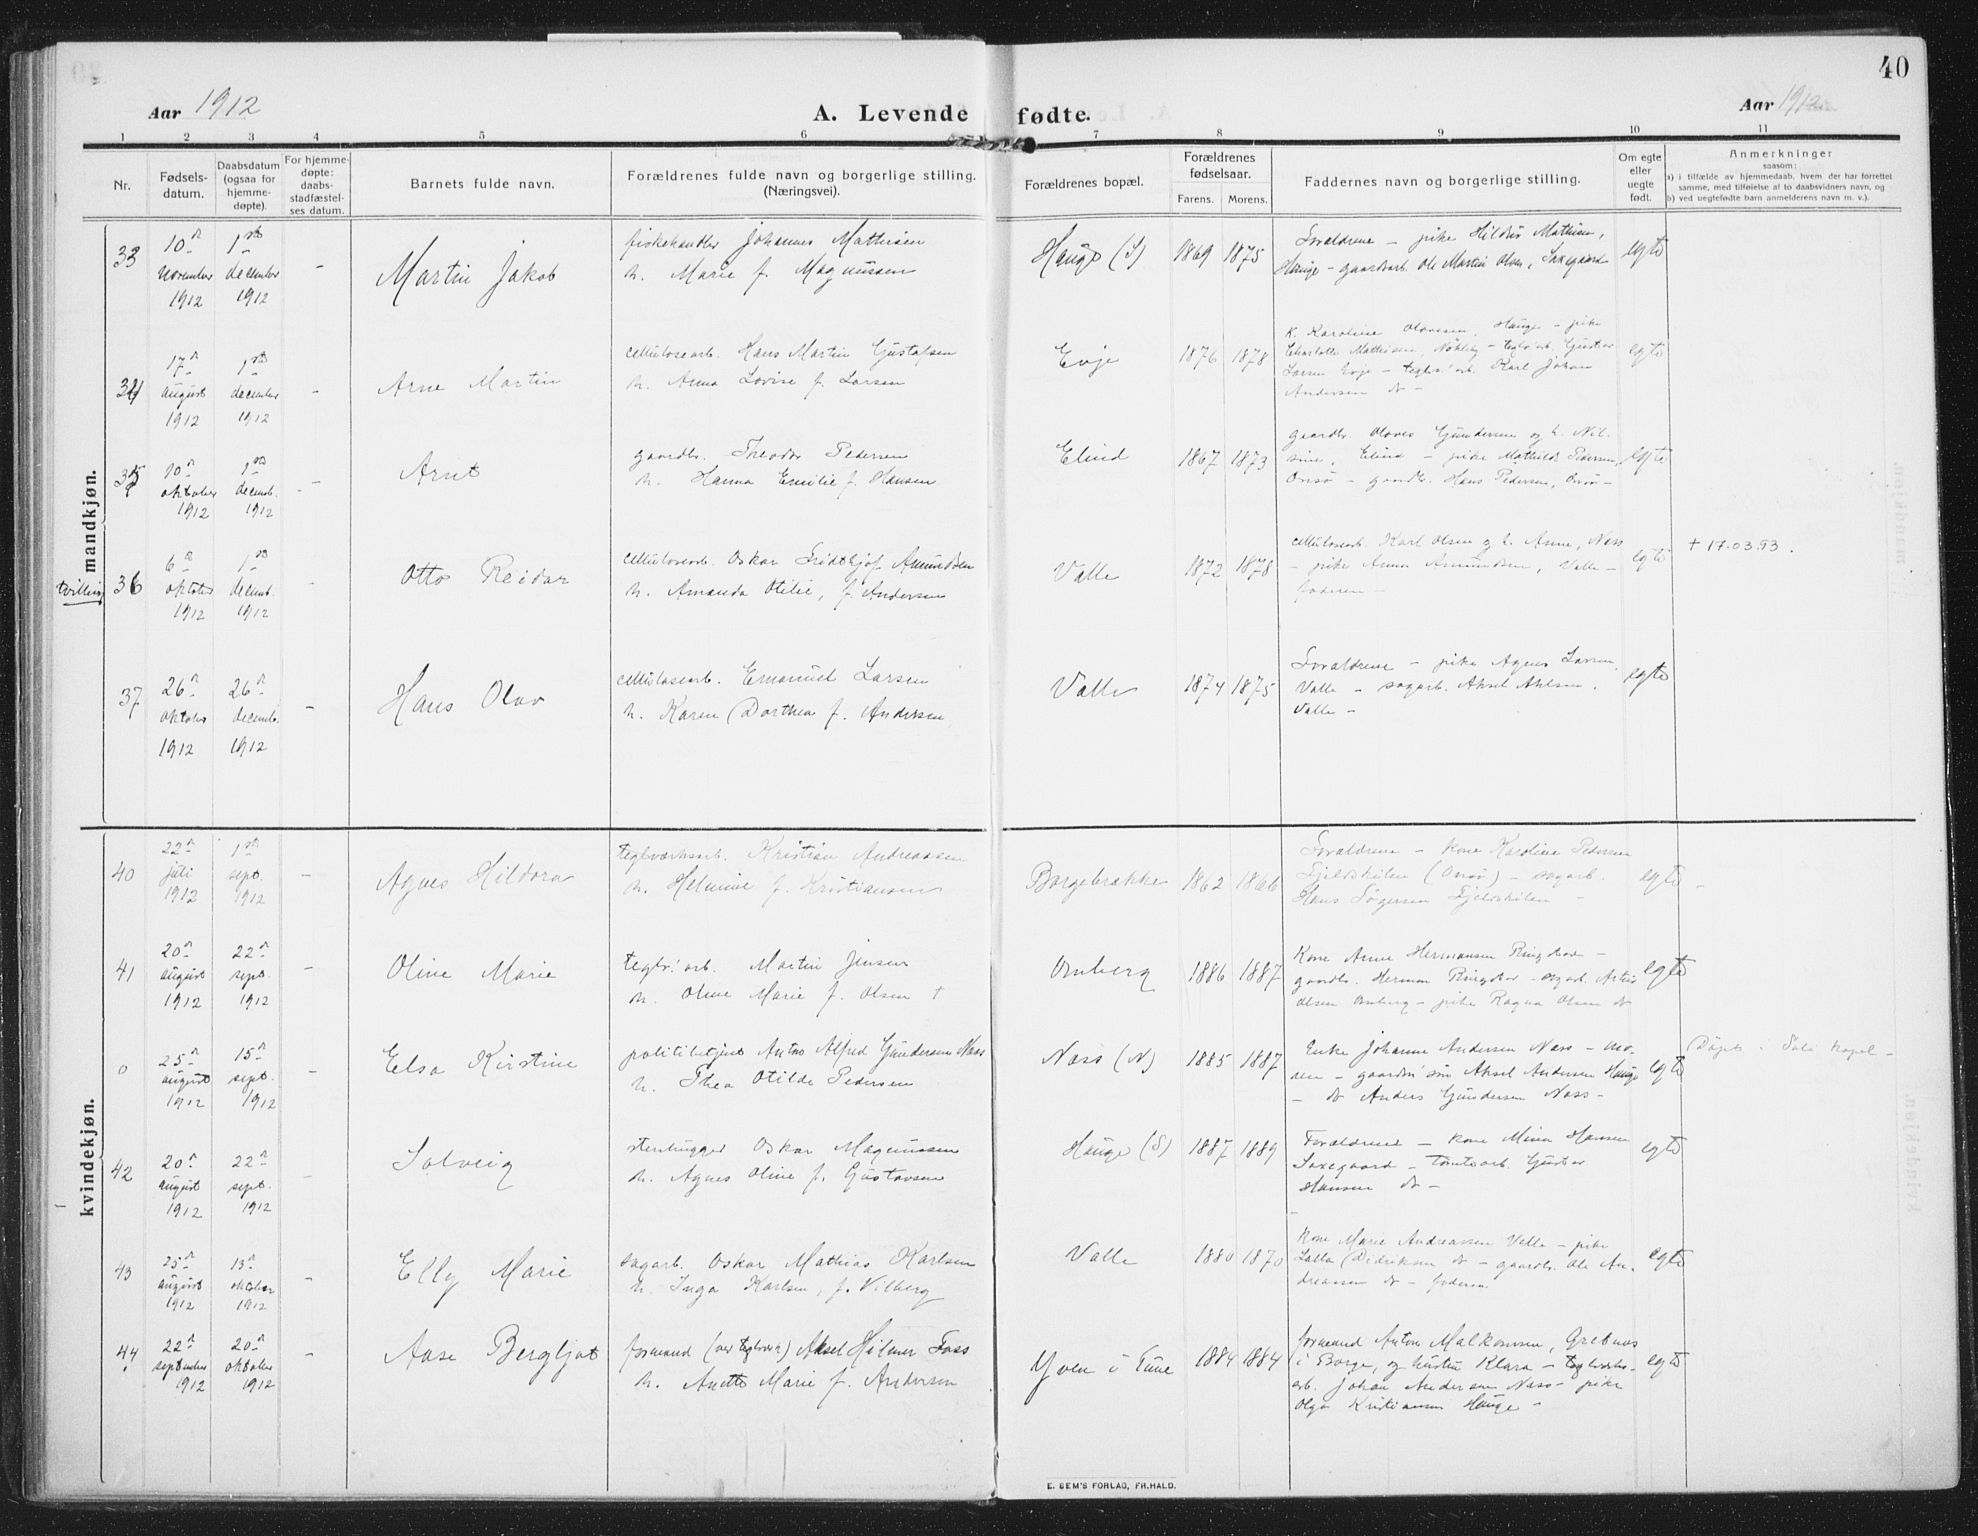 40
Aar 1912
A. Levende fødte.
Aar 1912
1 2 3 4 5 6 7 8 9 10 11
Nr.
Fødsels-
datum.
Daabsdatum
(ogsaa for
hjemme-
døpte).
For hjemme-
døpte:
daabs-
stadfæstel-
ses datum.
Barnets fulde navn.
Forældrenes fulde navn og borgerlige stilling.
(Næringsvei).
Forældrenes bopæl.
Forældrenes
fødselsaar.
Farens. Morens.
Faddernes navn og borgerlige stilling.
Om egte
eller
uegte
født.
Anmerkninger
saasom:
a) i tilfælde av hjemmedaab, hvem der har forrettet
samme, med tilføielse af to daabsvidners navn, og
b) ved uegtefødte barn anmelderens navn m. v.).
mandkjøn.
33
10de november 1912
1ste december 1912
-
Martin Jakob
fiskehandler Johannes Mathisen
h. Marie f. Magnussen
Hauge (S)
1869 1875
Forældrene - pike Hildur Mathisen,
Hauge - gaardarb. Ole Martin Olsen, Saxegaard
egte
34
17de august 1912
1ste december 1912
-
Arne Martin
cellulosearb. Hans Martin Gustafsen
h. Anna Lovise f. Larsen
Evje
1876 1878
K. Karoline Olavesen, Hauge - pike
Charlotte Mathisen, - teglv.arb. Gustav
Larsen Evje - teglv.arb. Karl Johan
Andersen do -
egte
35
10de oktober 1912
1ste decemb. 1912
-
Arnt
gaardbr. Theodor Pedersen
h. Hanna Emilie f. Hansen
Elind
1867 1873
gaardbr. Olaves Gundersen og h. Nil-
sine, Elind - pike Mathilde Pedersen,
Onsø - gaardbr. Hans Pedersen, Onsø -
egte
tvilling
36
6te oktober 1912
1ste decemb. 1912
-
Otto Reidar
cellulosearb. Oskar Fridthjof Amundsen
h. Amanda Otilie, f. Andersen
Valle
1872 1878
cellulosearb. Karl Olsen og h. Anne, Næss
- pike Anna Amundsen, Valle -
faderen -
egte
+ 17.03.93.
37
26de oktober 1912
26de decemb. 1912
-
Hans Olav
cellulosearb. Emanuel Larsen
h. Karen Dorthea f. Andersen
Valle
1874 1875
Forældrene - pike Agnes Larsen,
Valle - sagarb. Aksel Ahlsen,
Valle -
egte
kvindekjøn.
40
22de juli 1912
1ste sept. 1912
-
Agnes Hildora
teglverksarb. Kristian Andreassen
h. Helmine f. Kristiansen
Borgebrække
1862 1866
Forældrene - kone Karoline Pedersen
Fjeldskilen (Onsø) - sagarb.
Hans Jørgensen Fjeldskilen -
egte -
41
20de august 1912
22de sept. 1912
-
Oline Marie
teglv.arb. Martin Jensen
h. Oline Marie f. Olsen +
Omberg
1886 1887
Kone Anne Hermansen Ringstad -
gaardbr. Herman Ringstad - sagarb.
Olsen Omberg - pike Ragna Olsen do
egte
0
25de august 1912
15de sept. 1912
-
Elsa Kirstine
politibetjent Anton Alfred Gundersen Næss
h. Thea Otilde Pedersen
Næss (N)
1885 1887
Enke Johanne Andersen Næss - mo-
deren - gaardbr.'søn Aksel Andersen Hauge
- do Anders Gundersen Næss -
egte
(Døpt i Soli kapel -
42
20de august 1912
22de sept. 1912
-
Solveig
stenhugger Oskar Magnussen
h. Agnes Oline f. Gustavsen
Hauge (S)
1887 1889
Forældrene - kone Mina Hansen
Saxegaard - tomtearb. Gustav
Hansen do -
egte
43
25de august 1912
13de oktober 1912
-
Elly Marie
sagarb. Oskar Mathias Karlsen
h. Inga Karlsen, f. Vilberg
Valle
1880 1870
Kone Marie Andreassen Valle - pike
Lalla Didriksen do - gaardbr. Ole An-
dreassen do - faderen
egte
44
22de september 1912
20de oktober 1912
-
Aase Bergljot
formand (ver teglverk) Aksel Hilmer Foss
h. Anette Marie f. Andersen
Yven i Tune
1884 1884
formand Anton Malkomsen, Grebnes
i Borge, og hustru Klara - teglverks-
arb. Johan Andersen Næss - pike
Olga Kristiansen Hauge -
egte
E. SEM'S FORLAG, FR.HALD.